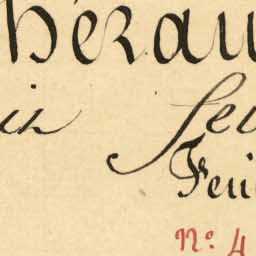 hérau
in feu
Feui
Nº 4